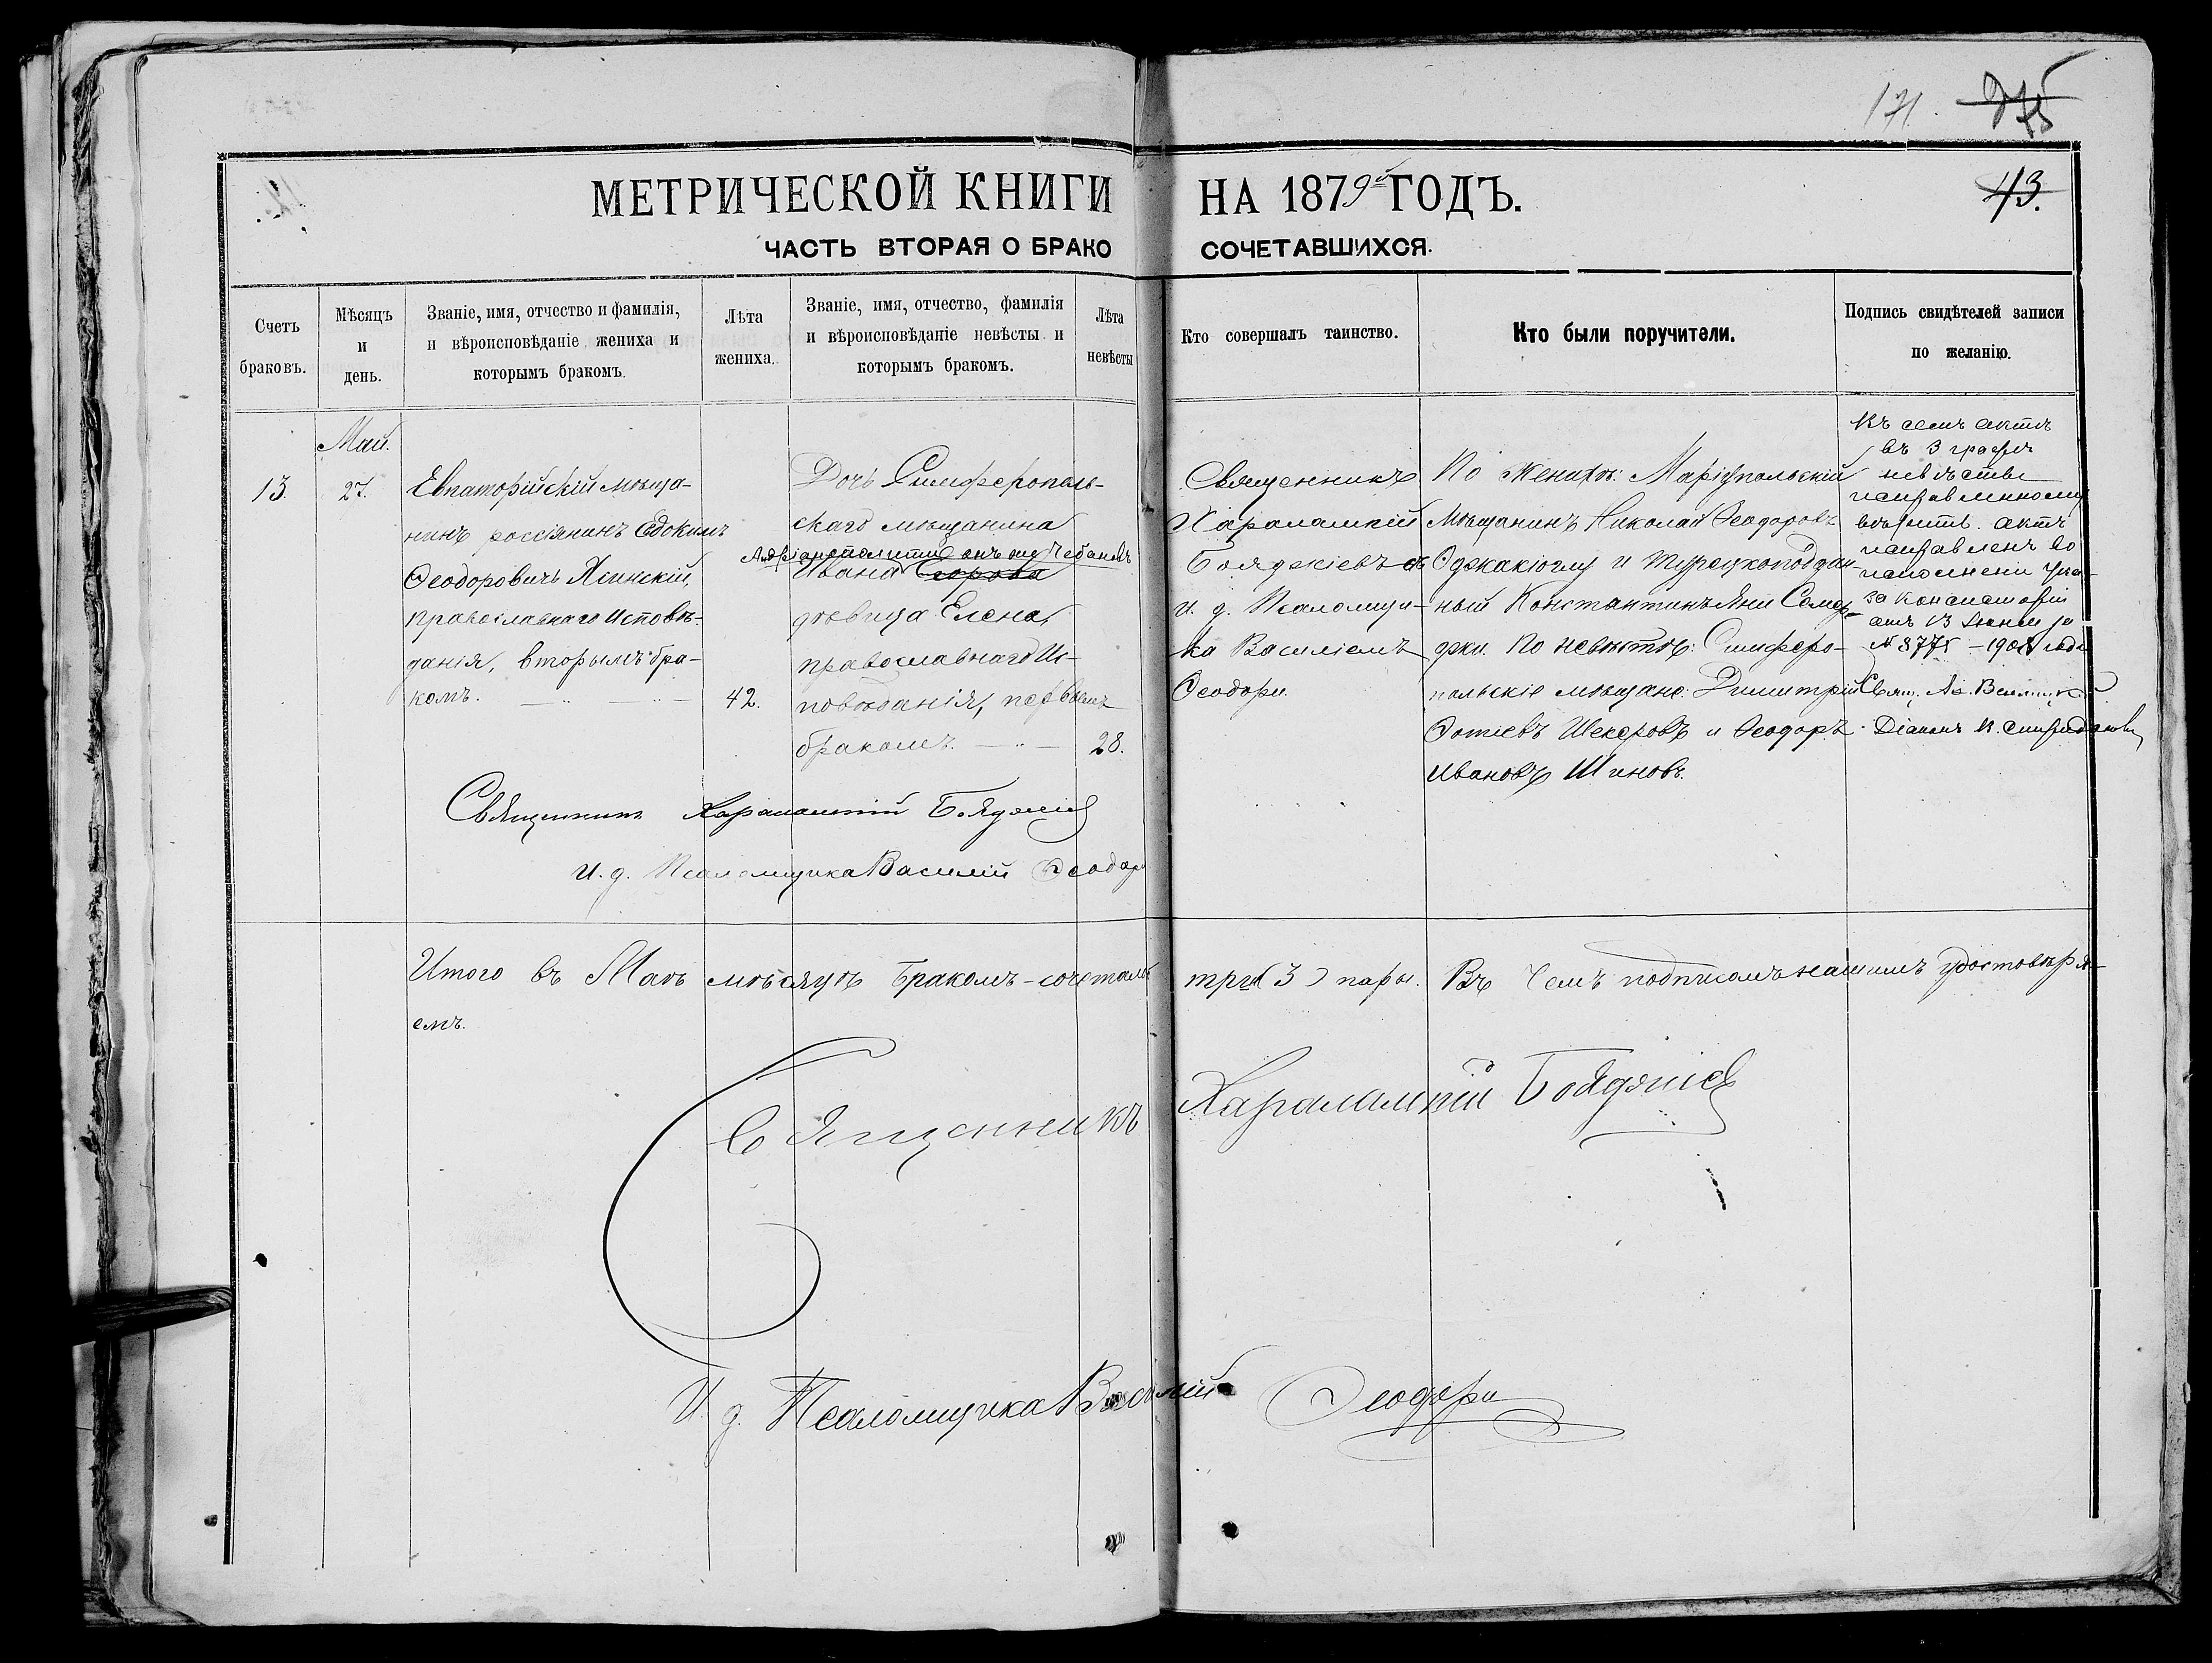 171. 275
МЕТРИЧЕСКОЙ КНИГИ НА 1879й ГОДЪ.
43.
ЧАСТЬ ВТОРАЯ О БРАКО СОЧЕТАВШИХСЯ.
Счетъ браковъ.
Мѣсяцъ и день.
Званіе, имя, отчество и фамилія,
и вѣроисповѣданіе жениха и
которымъ бракомъ.
Лѣта жениха.
Званіе, имя, отчество, фамилія
и вѣроисповѣданіе невѣсты и
которымъ бракомъ.
Лѣта невѣсты
Кто совершалъ таинство.
Кто были поручители.
Подпись свидѣтелей записи
по желанію.
13.
Май.
27.
Евпаторійскій мѣща-
нинъ россіянинъ Евдокимъ
Ѳеодоровичъ Ясинскій,
православнаго исповѣ-
данія, вторымъ бра-
комъ.
42.
Дочь Симферополь-
скаго мѣщанина
онъ же Чебановъ
Ивана
дѣвица Елена,
православнаго Ис-
повѣданія, первымъ
бракомъ.
28.
Священникъ
Харалампій
Бояджіевъ съ
и. д. Псаломщи-
ка Василіемъ
Ѳеодори.
По Женихѣ: Маріупольскій
Мѣщанинъ Николай Ѳеодоровъ
Оджакіоглу и турецкоподдан-
ный Константинъ Яни
По невѣстѣ: Симферо-
польскіе мѣщане: Димитрій
Фотіевъ Шекеровъ и Ѳеодоръ
Ивановъ Шиновъ.
Къ семъ актѣ
въ 3 графѣ
актъ
исправленъ во
исполненіи ука-
за консисторіи
отъ 13 Іюня за
№ 8775 – 190 года
Свящ.
Діаконъ
Священникъ Харалампій Бояджіевъ
И. д. Псаломщика Василій Ѳеодори
Итого въ Маѣ мѣсяцѣ Бракомъ-сочеталось три (3) пары. Въ чемъ подписомъ нашимъ удостовѣря-
емъ.
Священникъ Харалампій Бояджіевъ
И. д. Псаломщика Василій Ѳеодори